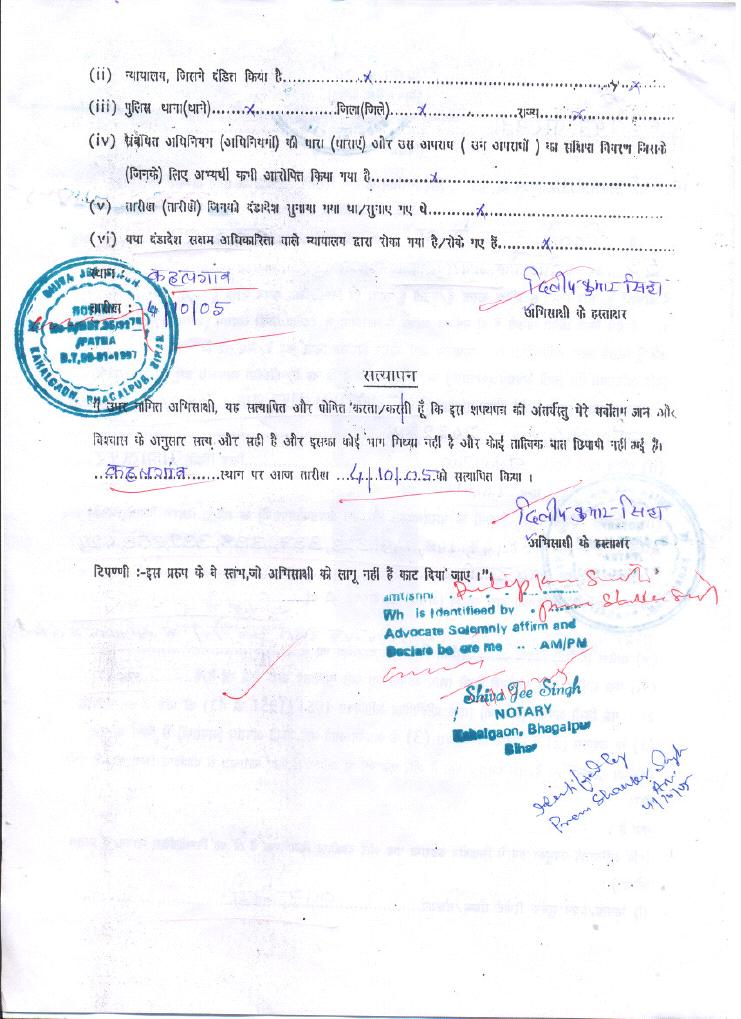 (ii) न्यायालय, जिसने दंडित किया है..........x..........x
(iii) पुलिस थाना(थाने)......x..........जिला(जिले)......x..........राज्य......x......
(iv) संबंधित अधिनियम (अधिनियमों) की धारा (धाराएं) और उस अपराध ( उन अपराधों ) का संक्षिप्त विवरण जिसके
(जिनके) लिए अभ्यर्थी कभी आरोपित किया गया है..........x..........
(v) तारीख (तारीखें) जिनको दंडादेश सुनाया गया था/सुनाए गए थे..........x..........
(vi) क्या दंडादेश सक्षम अधिकारिता वाले न्यायालय द्वारा रोका गया है/रोके गए हैं..........x..........
स्थान : कहलगांव
तारीख : 4/10/05
दिलीप कुमार सिंह
अभिसाक्षी के हस्ताक्षर
SHIVA JEE SINGH
NOTARY
/PATNA
D.T,06-01-1997
KAHALGAON, BHAGALPUR, BIHAR
सत्यापन
उपर नामित अभिसाक्षी, यह सत्यापित और घोषित करता/करती हूँ कि इस शपथपत्र की अंतर्वस्तु मेरे सर्वोतम ज्ञान और
विश्वास के अनुसार सत्य और सही है और इसका कोई भाग मिथ्या नहीं है और कोई तात्विक बात छिपायी नहीं गई है।
..कहलगांव........स्थान पर आज तारीख ...4/10/05...को सत्यापित किया ।
दिलीप कुमार सिंह
अभिसाक्षी के हस्ताक्षर
टिपण्णी :-इस प्ररुप के वे स्तंभ,जो अभिसाक्षी को लागू नहीं हैं काट दिया जाए ।"।
Dilip Kumar Singh
Wh is Identifieed by Prem Shanker Singh
Advocate Solemnly affirm and
Declare be ore me .. AM/PM
Shiva Jee Singh
NOTARY
Kahalgaon, Bhagalpur
Bihar
Identified by
Prem Shanker Singh
Adv.
4/10/05